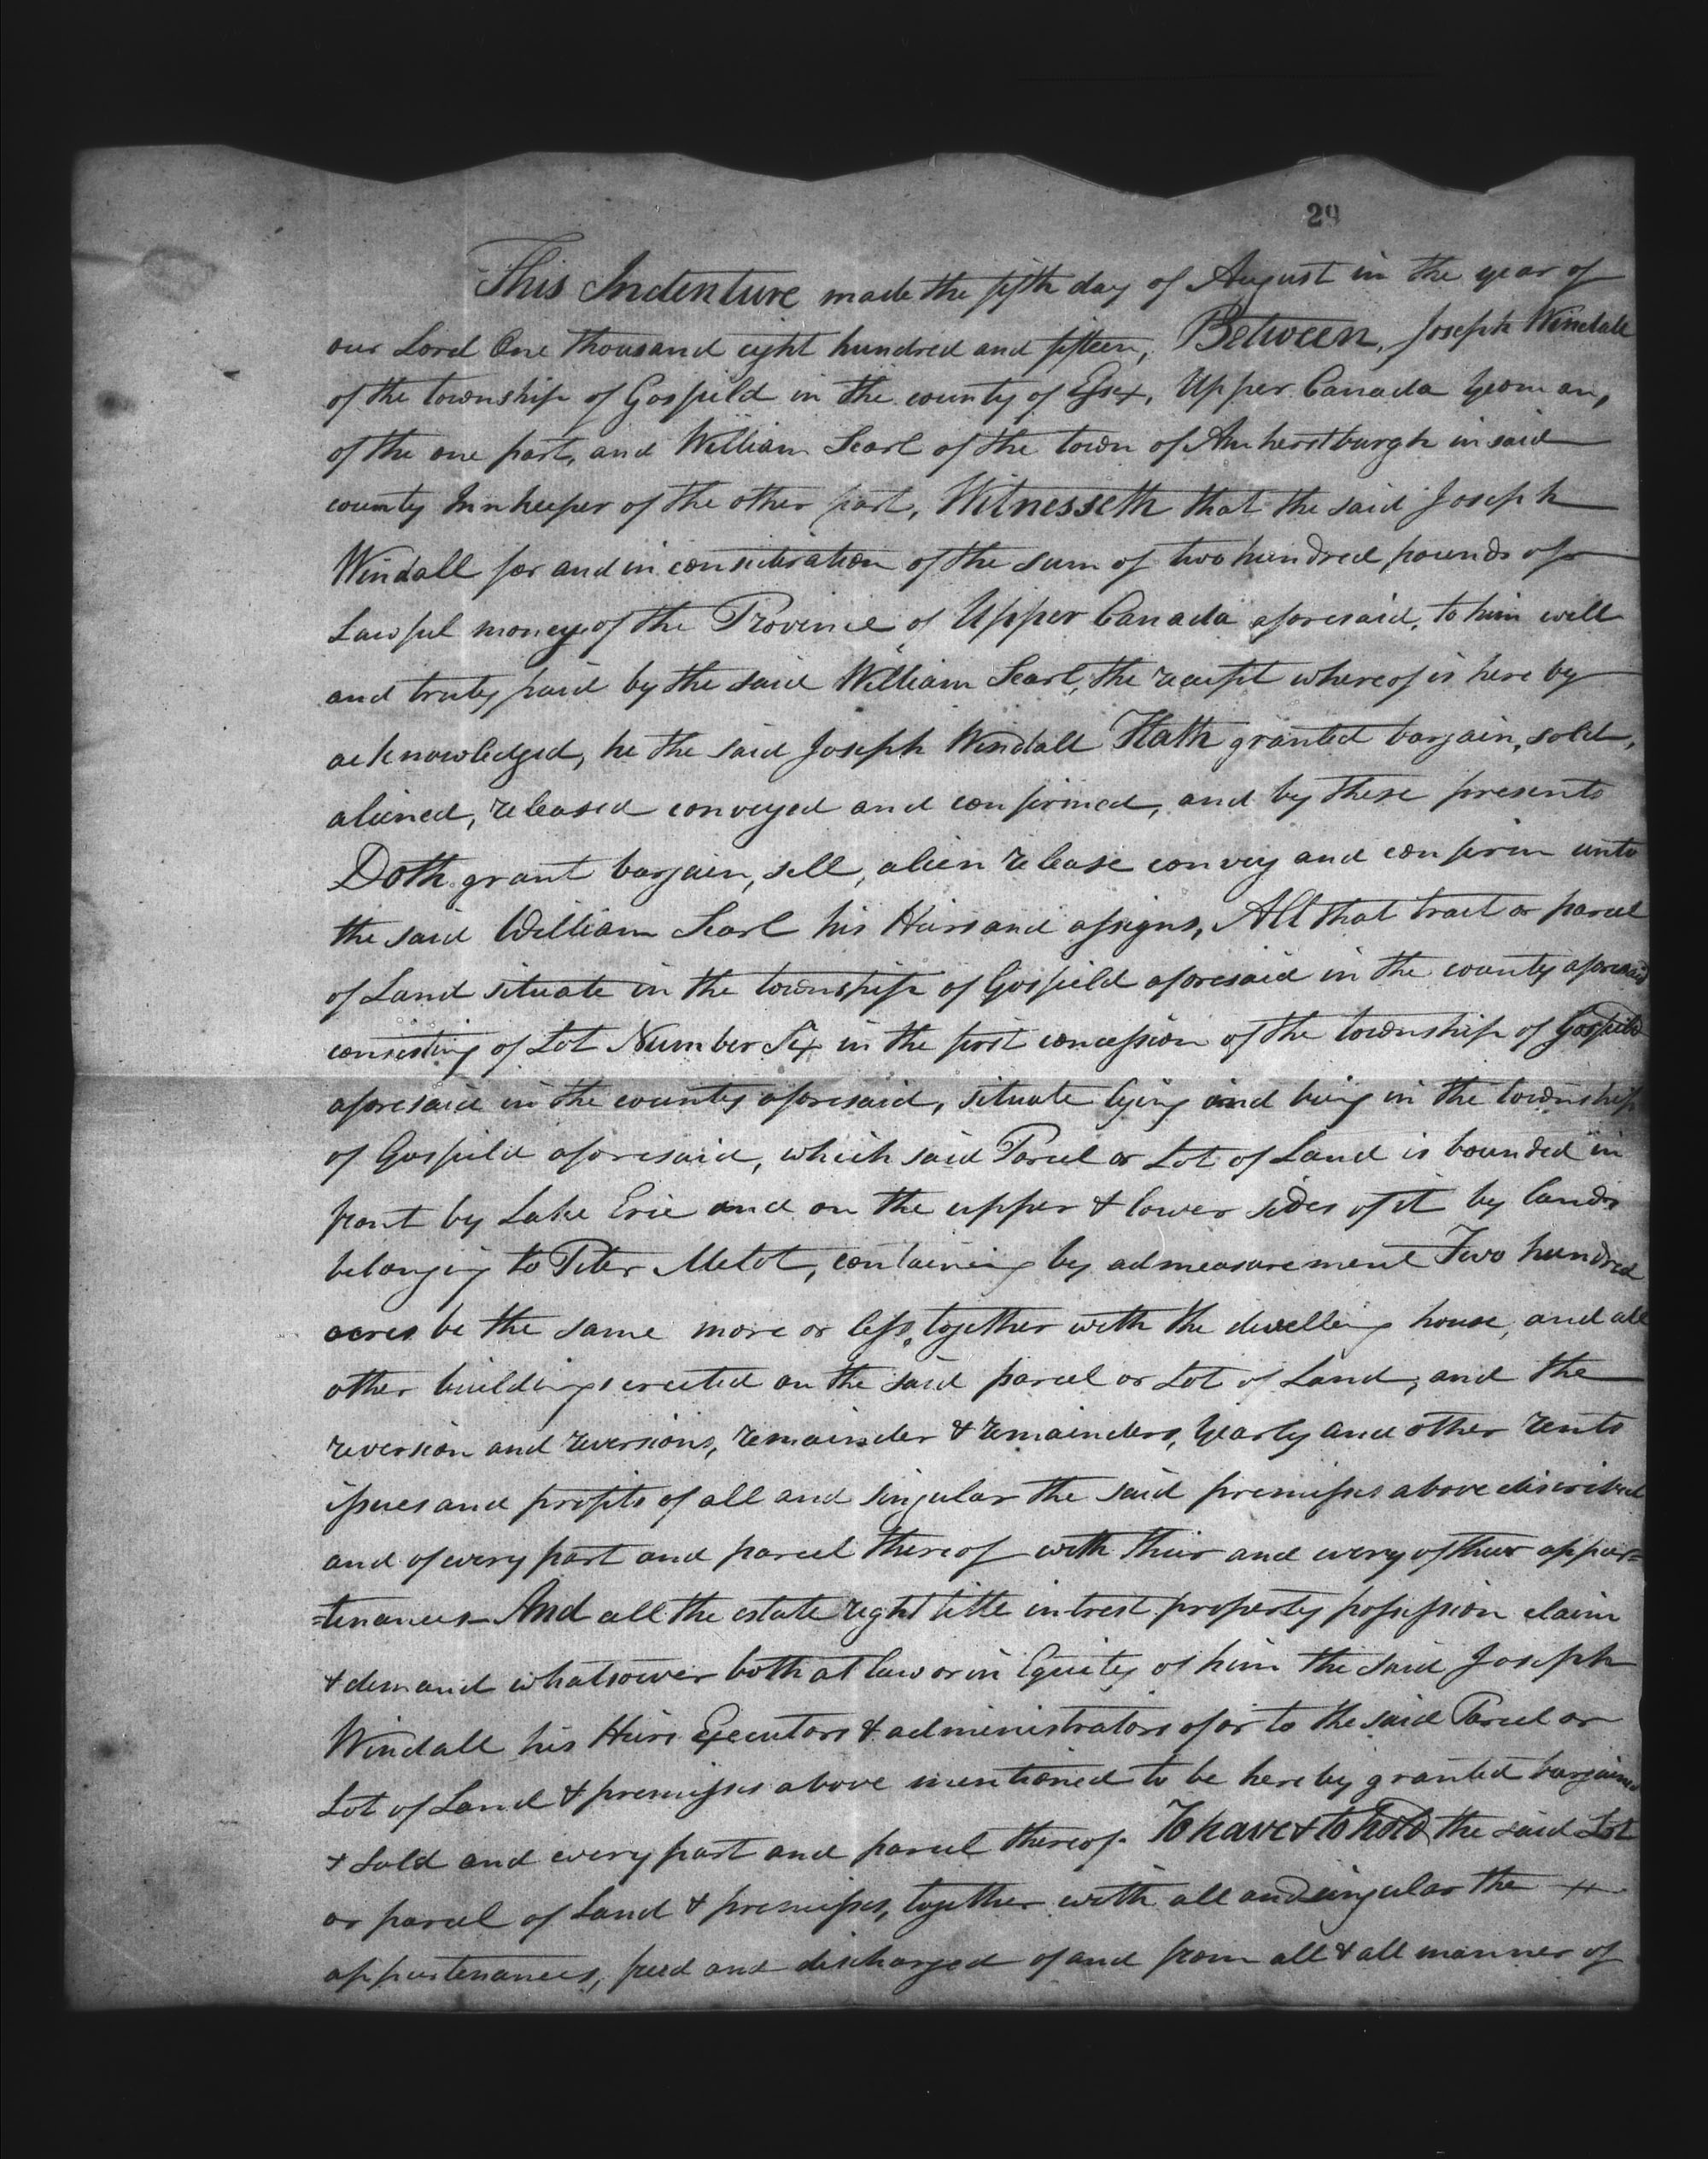 29
This Indenture made the fifth day of August in the year of
our Lord One thousand eight hundred and fifteen, Between, Joseph Windall
of the township of Gosfield in the county of Essex, Upper Canada yeoman,
of the one part, and William Searl of the town of Amherstburgh in said
county Innkeeper of the other part, Witnesseth that the said Joseph
Windall for and in consideration of the sum of two hundred pounds of
Lawful money of the Province of Upper Canada aforesaid, to him well
and truly paid by the said William Searl, the receipt whereof is here by
acknowledged, he the said Joseph Windall Hath granted bargain, sold,
aliened, released conveyed and confirmed, and by these presents
Doth grant bargain, sell, alien release convey and confirm unto
the said William Searl his Heirs and assigns, All that tract or parcel
of Land situate in the township of Gosfield aforesaid in the county aforesaid
consisting of Lot Number Six in the first concession of the township of Gosfield
aforesaid in the county aforesaid, situate lying and being in the township
of Gosfield aforesaid, which said Parcel or Lot of Land is bounded in
front by Lake Erie and on the upper & lower sides of it by lands
belonging to Peter Malot, containing by admeasurement Two hundred
acres be the same more or less, together with the dwelling house, and all
other buildings erected on the said parcel or Lot of Land, and the
reversion and reversions, remainder & remainders, yearly and other rents
issues and profits of all and singular the said premisses above discribed
and of every part and parcel thereof with their and every of their appur=
=tenances And all the estate right title intrest property possession claim
& demand whatsoever both at law or in Equity of him the said Joseph
Windall his Heirs Executors & administrators of or to the said Parcel or
Lot of Land & premisses above mentioned to be hereby granted bargained
& sold and every part and parcel thereof. To have & to hold the said Lot
or parcel of Land & premisses, together with all and singular the
appurtenances, freed and discharged of and from all & all manner of